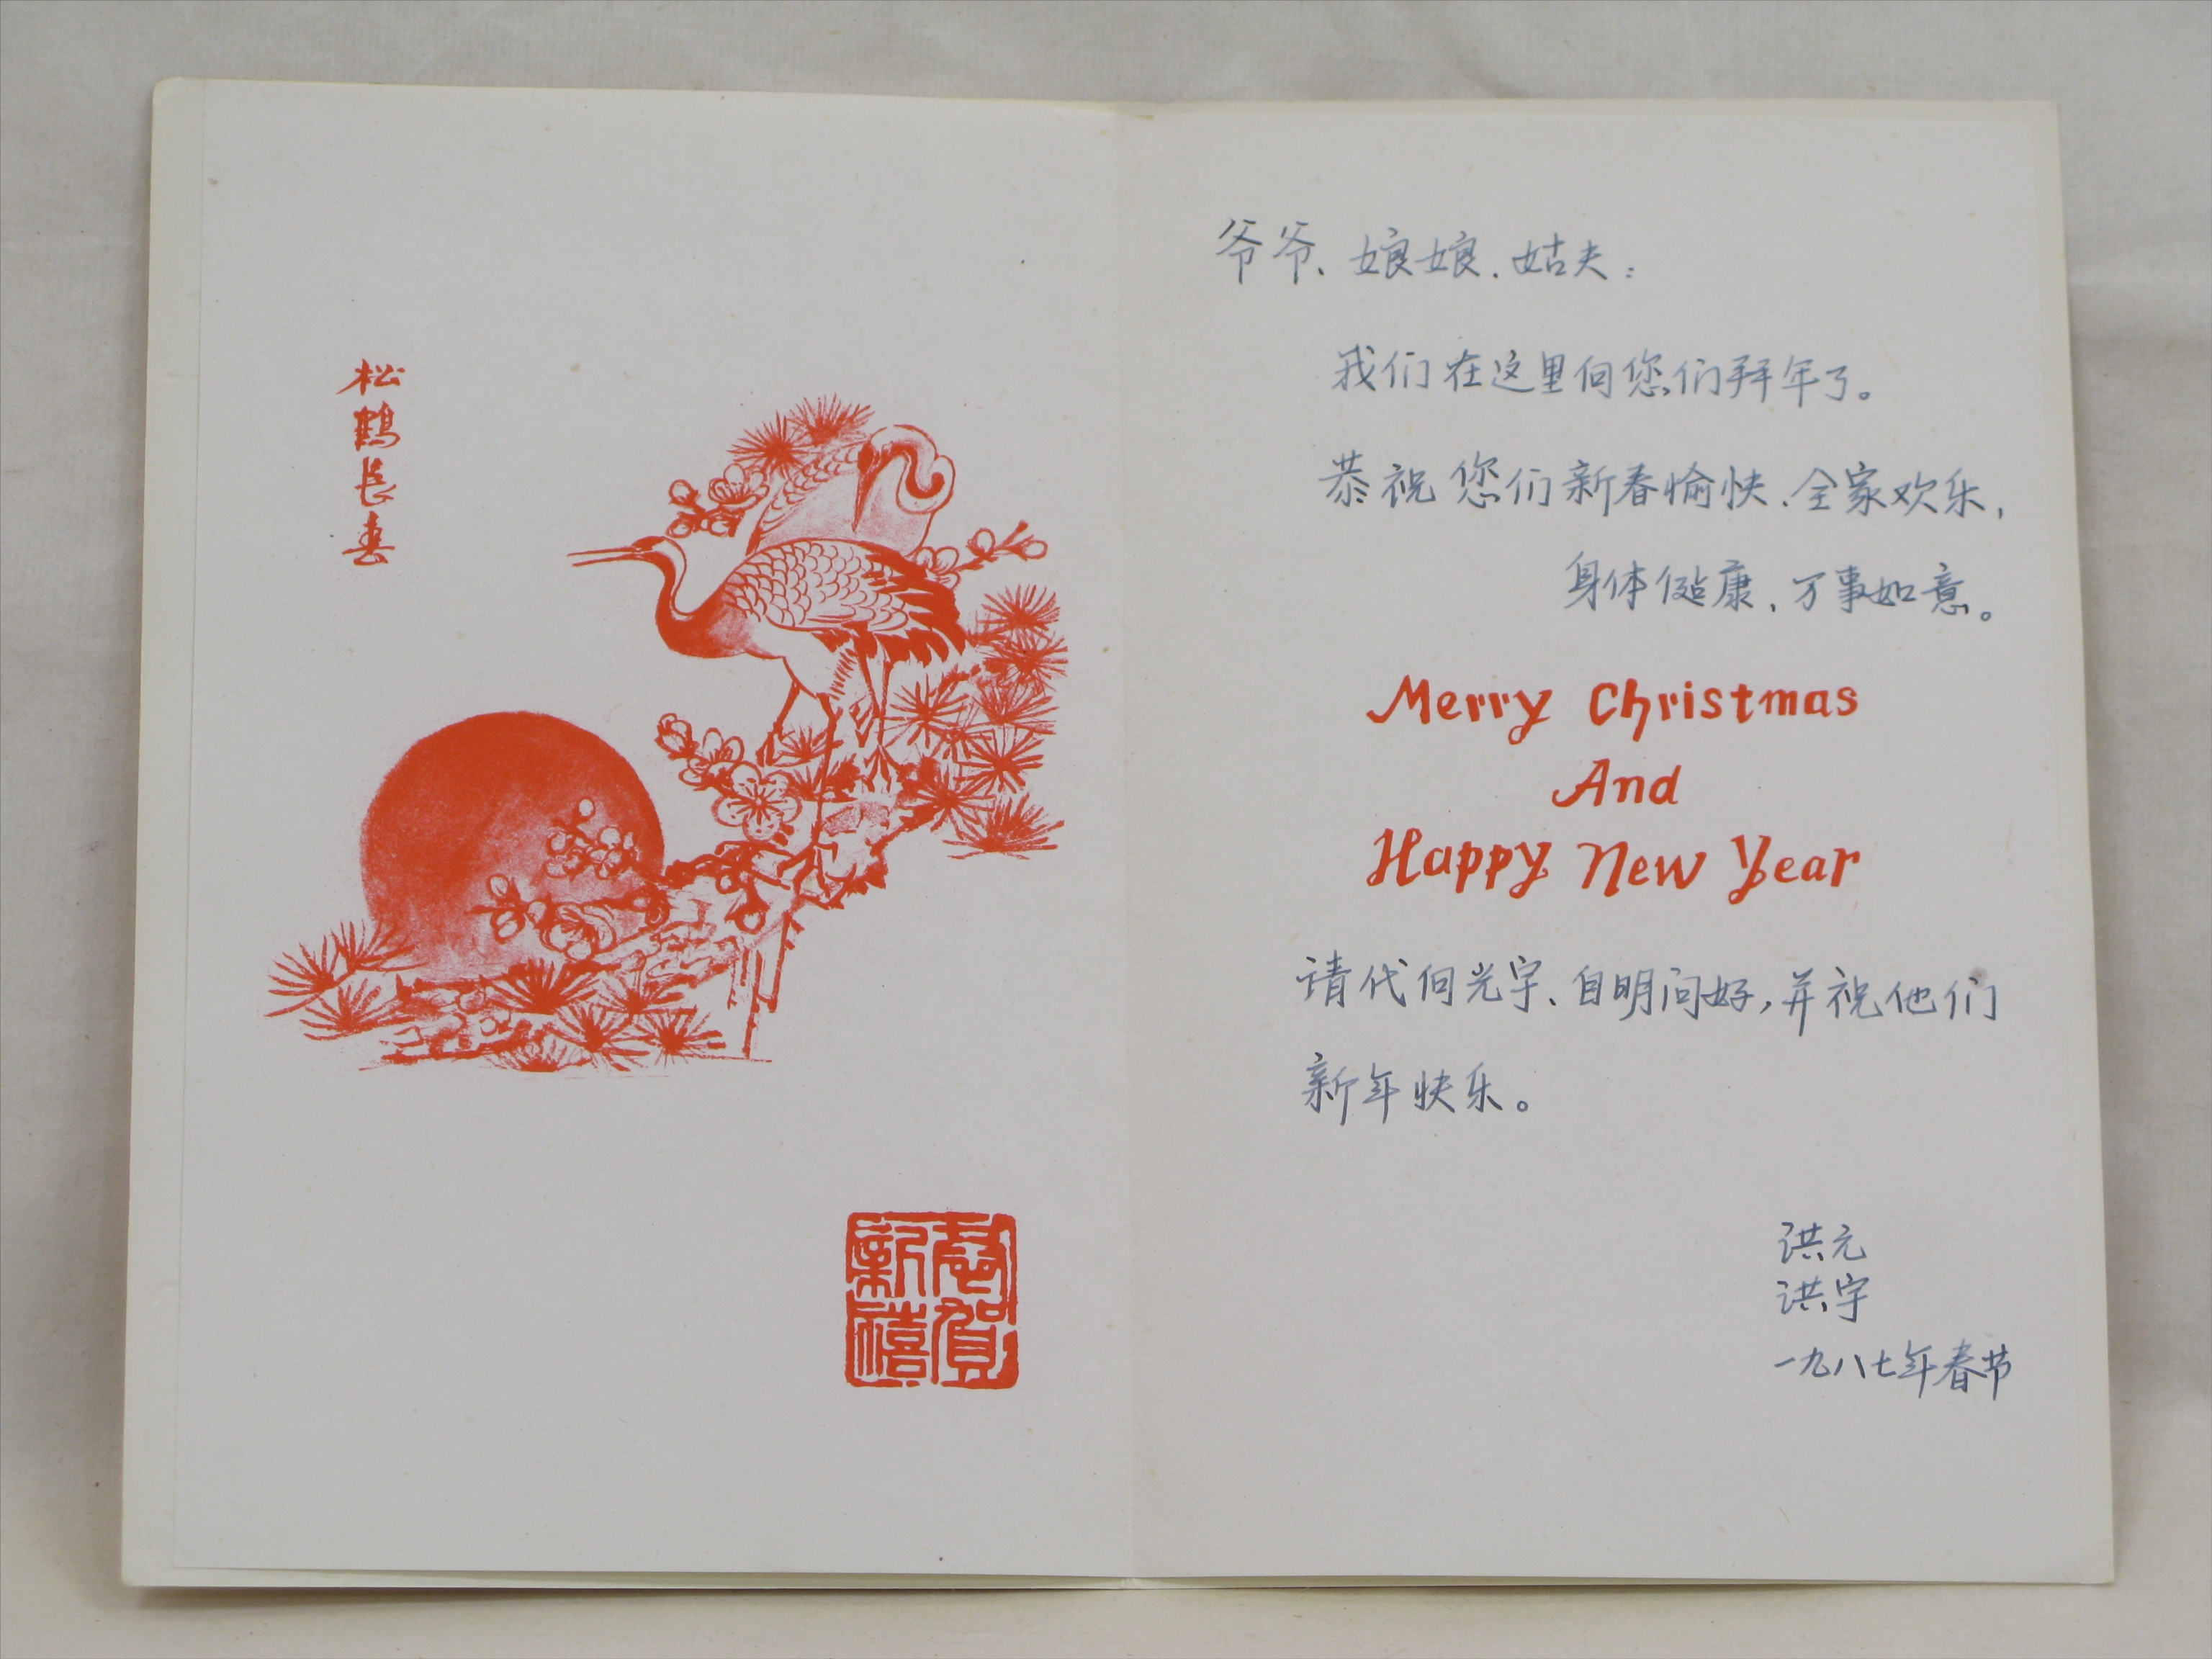 松鹤长春
恭贺
新禧
爷爷、娘娘、姑夫：
我们在这里向您们拜年了。
恭祝您们新春愉快、全家欢乐，
身体健康、万事如意。
Merry Christmas
And
Happy New Year
请代向光宇、自明问好，并祝他们
新年快乐。
洪元
洪宇
一九八七年春节